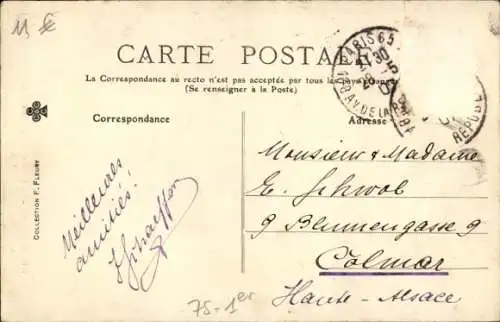 11 €
CARTE POSTALE
La Correspondance au recto n'est pas acceptée par tous les pays étrangers
(Se renseigner à la Poste)
Correspondance
Adresse
PARIS 65
AV. DE LA RÉPUB
RÉPUB
Monsieur & Madame
E. Schwob
9 Blumengasse 9
Colmar
Haute-Alsace
Meilleures
amitiés!
COLLECTION F. FLEURY
75-1er